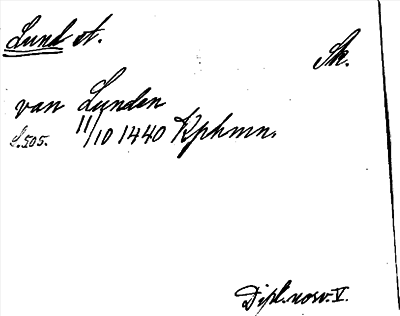 Lund st.
Sk.
van Lunden
S. 505. 11/10 1440 Kphmn.
Dipl. norv. V.